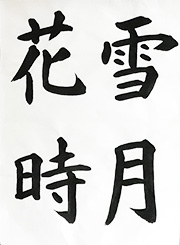 雪月
花時